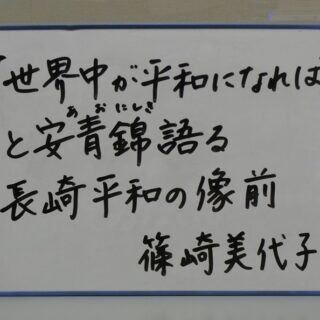 「世界中が平和になれば
と安青錦語る
あおにしき
長崎平和の像前
篠崎美代子